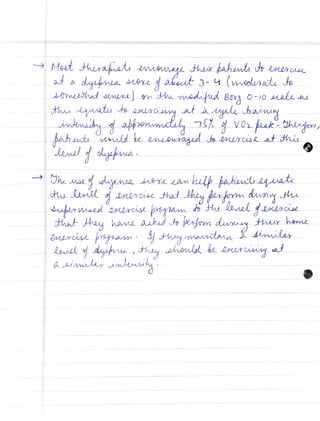 → Most therapists encourage their patients to exercise
at a dyspnea score of about 3-4 (moderate to
somewhat severe) on the modified Borg 0-10 scale as
this equates to exercising at a cycle training
intensity of approximately 75% of VO2 peak. Therefore,
patients would be encouraged to exercise at this
level of dyspnea.
→ The use of dyspnea score can help patients equate
the level of exercise that they perform during the
supervised exercise program to the level of exercise
that they have asked to perform during their home
exercise program. If they maintain a similar
level of dyspnea, they should be exercising at
a similar intensity.